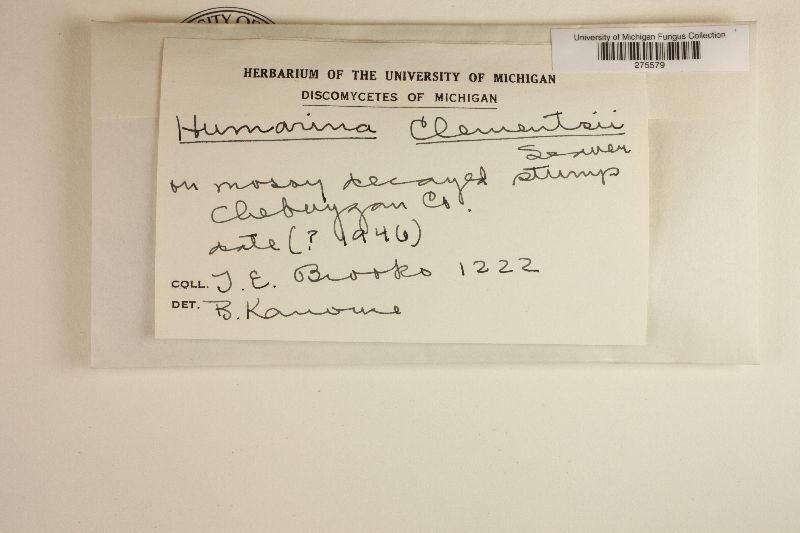 SITY OF
University of Michigan Fungus Collection
275579
HERBARIUM OF THE UNIVERSITY OF MICHIGAN
DISCOMYCETES OF MICHIGAN
Humarina Clementsii
Seaver
on mossy decayed stump
Cheboygan Co.
date (? 1946)
COLL. T. E. Brooks 1222
DET. B. Kanouse